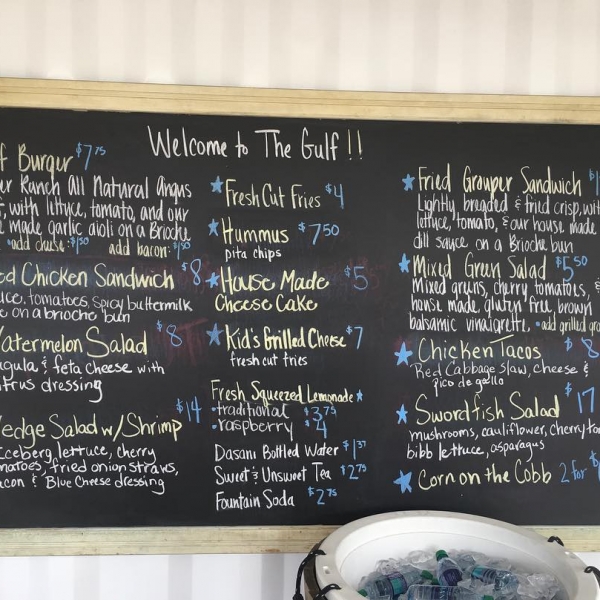 Welcome to The Gulf!!
f Burger $7.75
er Ranch All Natural Angus
f, with lettuce, tomato, and our
e made garlic aioli on a Brioche
•add cheese: $1.50 add bacon: $1.50
ed Chicken Sandwich $8
uce, tomatoes, spicy buttermilk
e on a brioche bun
Watermelon Salad $8
ugula & feta cheese with
itrus dressing
$14
Wedge Salad w/Shrimp
Iceberg lettuce, cherry
matoes, fried onion straws,
acon & Blue Cheese dressing
Fresh Cut Fries $4
Hummus $7.50
pita chips
House Made $5
Cheese Cake
Kid's Grilled Cheese $7
fresh cut fries
Fresh Squeezed Lemonade
•traditional $3.75
•raspberry $4
Dasani Bottled Water $1.37
Sweet & Unsweet Tea $2.75
Fountain Soda $2.75
Fried Grouper Sandwich $1
Lightly breaded & fried crisp, wit
lettuce, tomato, & our house made
dill sauce on a Brioche bun
Mixed Green Salad $5.50
Mixed gruns, cherry tomatoes, &
house made gluten free brown
balsamic vinaigrette. •add grilled gro
Chicken Tacos $8
Red Cabbage slaw, cheese &
pico de gallo
$17
Swordfish Salad
mushrooms, cauliflower, cherry tom
bibb lettuce, asparagus
Corn on the Cobb 2 for $